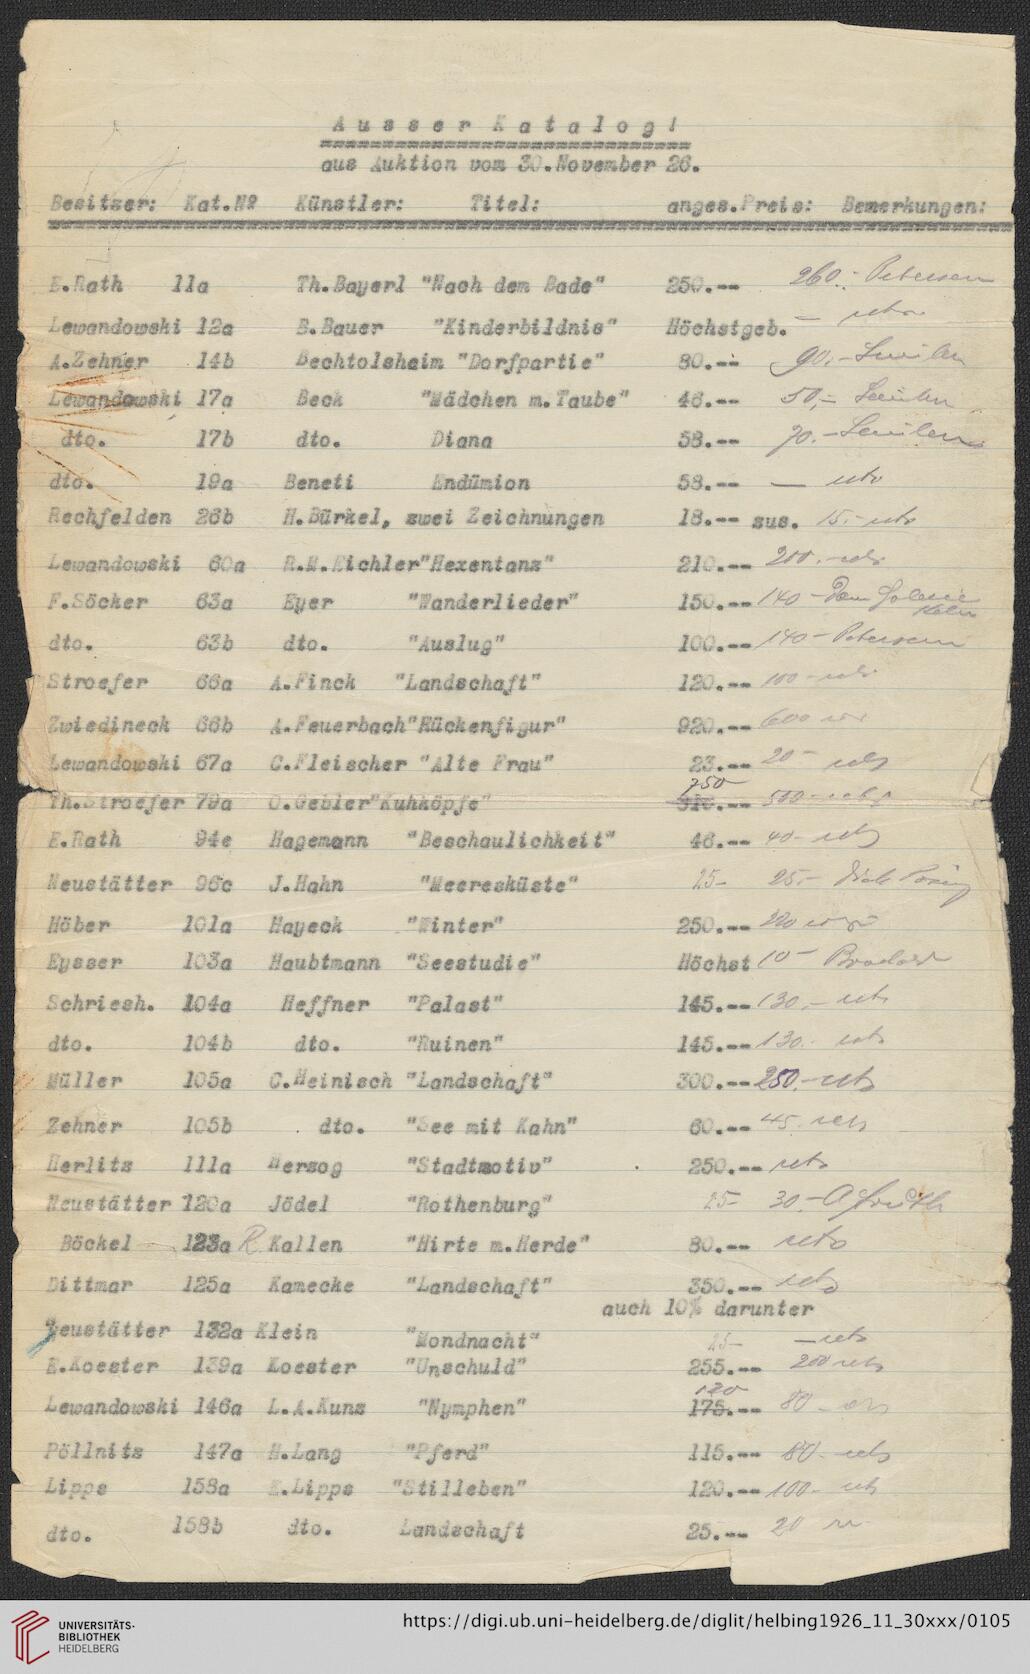 Ausser Katalog!
aus Auktion vom 30.November 26.
Besitzer: Kat.No Künstler: Titel: anges.Preis: Bemerkungen:
E.Rath 11a Th.Bayerl "Nach dem Bade" 250.-- 260.- Petersen
Lewandowski 12a B.Bauer "Kinderbildnis" Höchstgeb. —
A.Zehner 14b Bechtolsheim "Dorfpartie" 80.-- 90.-
Lewandowski 17a Beck "Mädchen m.Taube" 46.-- 50.-
dto. 17b dto. Diana 58.-- 70.-
dto. 19a Beneti Endümion 58.-- —
Rechfelden 26b H.Bürkel, zwei Zeichnungen 18.-- zus. 15.-
Lewandowski 60a R.M.Eichler"Hexentanz" 210.-- 200.-
F.Söcker 63a Eyer "Wanderlieder" 150.-- 140 -
dto. 63b dto. "Auslug" 100.-- 140 - Petersen
Stroefer 66a A.Finck "Landschaft" 120.-- 100 -
Zwiedineck 66b A.Feuerbach"Rückenfigur" 920.-- 600
Lewandowski 67a C.Fleischer "Alte Frau" 23.-- 20 -
750
Th.Stroefer 79a O.Gebler"Kuhköpfe" 500 -
E.Rath 94e Hagemann "Beschaulichkeit" 46.-- 40 -
Neustätter 96c J.Hahn "Meeresküste" 25- 25.-
Höber 101a Hayeck "Winter" 250.-- 220
Eysser 103a Haubtmann "Seestudie" Höchst 10 -
Schriesh. 104a Heffner "Palast" 145.-- 130.-
dto. 104b dto. "Ruinen" 145.-- 130.-
Müller 105a C.Heinisch "Landschaft" 300.-- 250.-
Zehner 105b dto. "See mit Kahn" 60.-- 45.
Herlitz 111a Herzog "Stadtmotiv" 250.--
Neustätter 120a Jödel "Rothenburg" 25- 30.-
Böckel 123a R. Kallen "Hirte m.Herde" 80.--
Dittmar 125a Kamecke "Landschaft" 350.--
auch 10% darunter
Neustätter 132a Klein "Mondnacht" 25-
E.Koester 139a Koester "Unschuld" 255.-- 200
120
Lewandowski 146a L.A.Kunz "Nymphen" 175.-- 80 -
Pöllnitz 147a H.Lang "Pferd" 115.-- 80.-
Lipps 158a E.Lipps "Stilleben" 120.-- 100 -
dto. 158b dto. Landschaft 25.-- 20
UNIVERSITÄTS-
BIBLIOTHEK
HEIDELBERG
https://digi.ub.uni-heidelberg.de/diglit/helbing1926_11_30xxx/0105